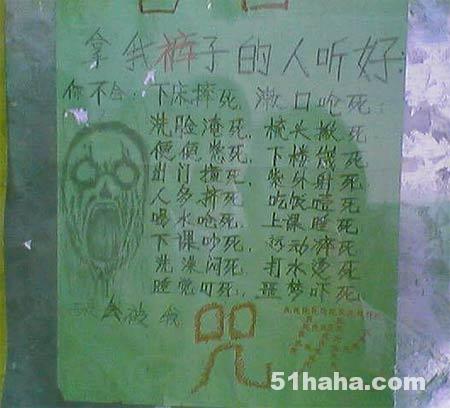 拿我裤子的人听好:
你不会: 下床摔死, 漱口呛死:
洗脸淹死, 梳头揪死
便便憋死, 下楼 死
出门横死, 紫外射死
人多挤死, 吃饭噎死
喝水呛死, 上课睡死
下课吵死, 运动瘁死
洗澡闷死, 打水烫死
睡觉叮死, 噩梦吓死
会被我 咒
51haha.com